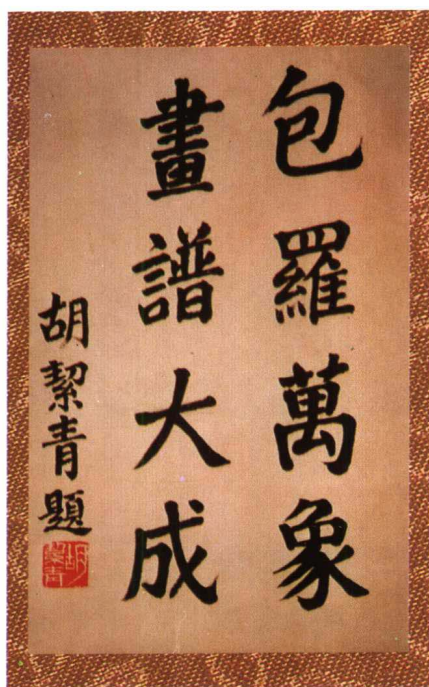 包羅萬象
畫譜大成
胡絜青題
胡絜青